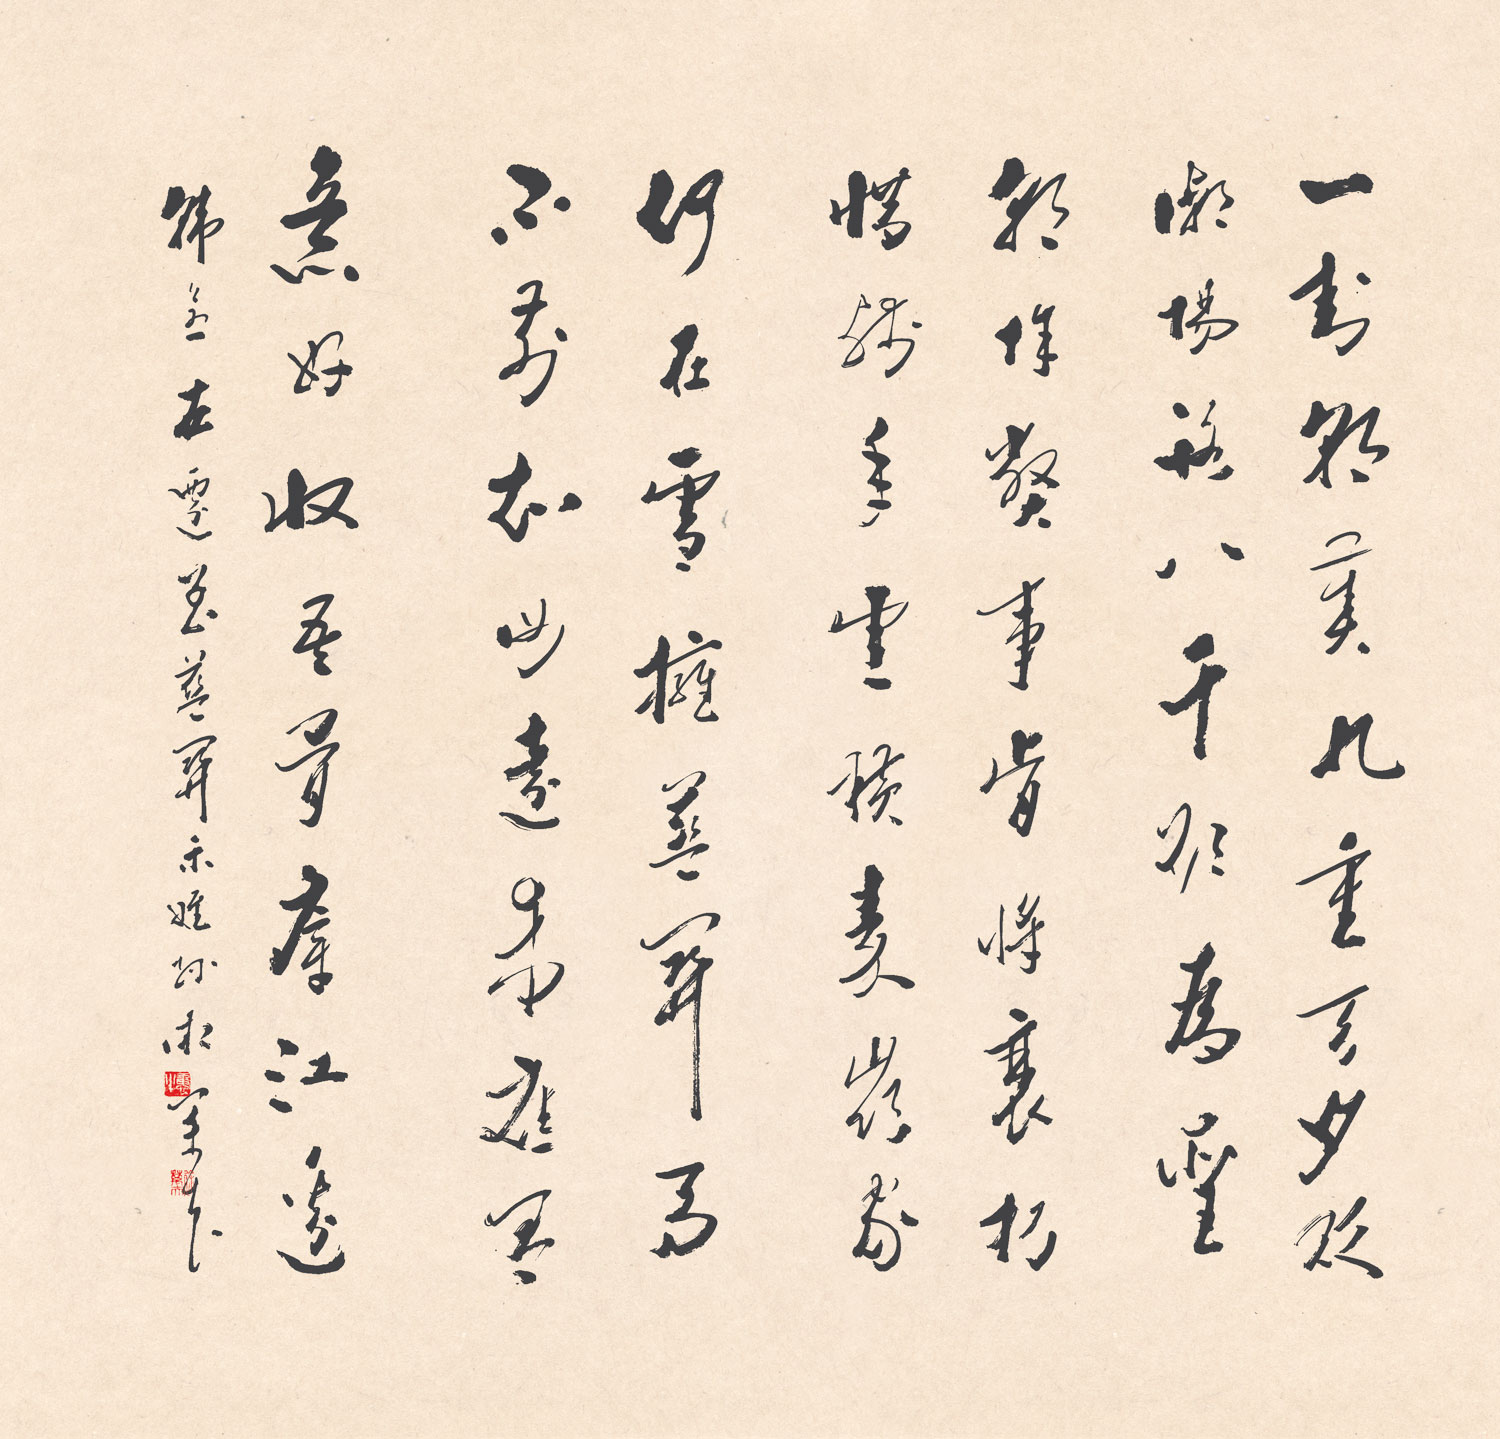 一封朝奏九重天夕貶
潮陽路八千欲為聖
朝除弊事肯將衰朽
惜殘年雲橫秦嶺家
何在雪擁藍關馬
不前知汝遠來應有
意好收吾骨瘴江邊
韓愈左遷至藍關示姪孫湘